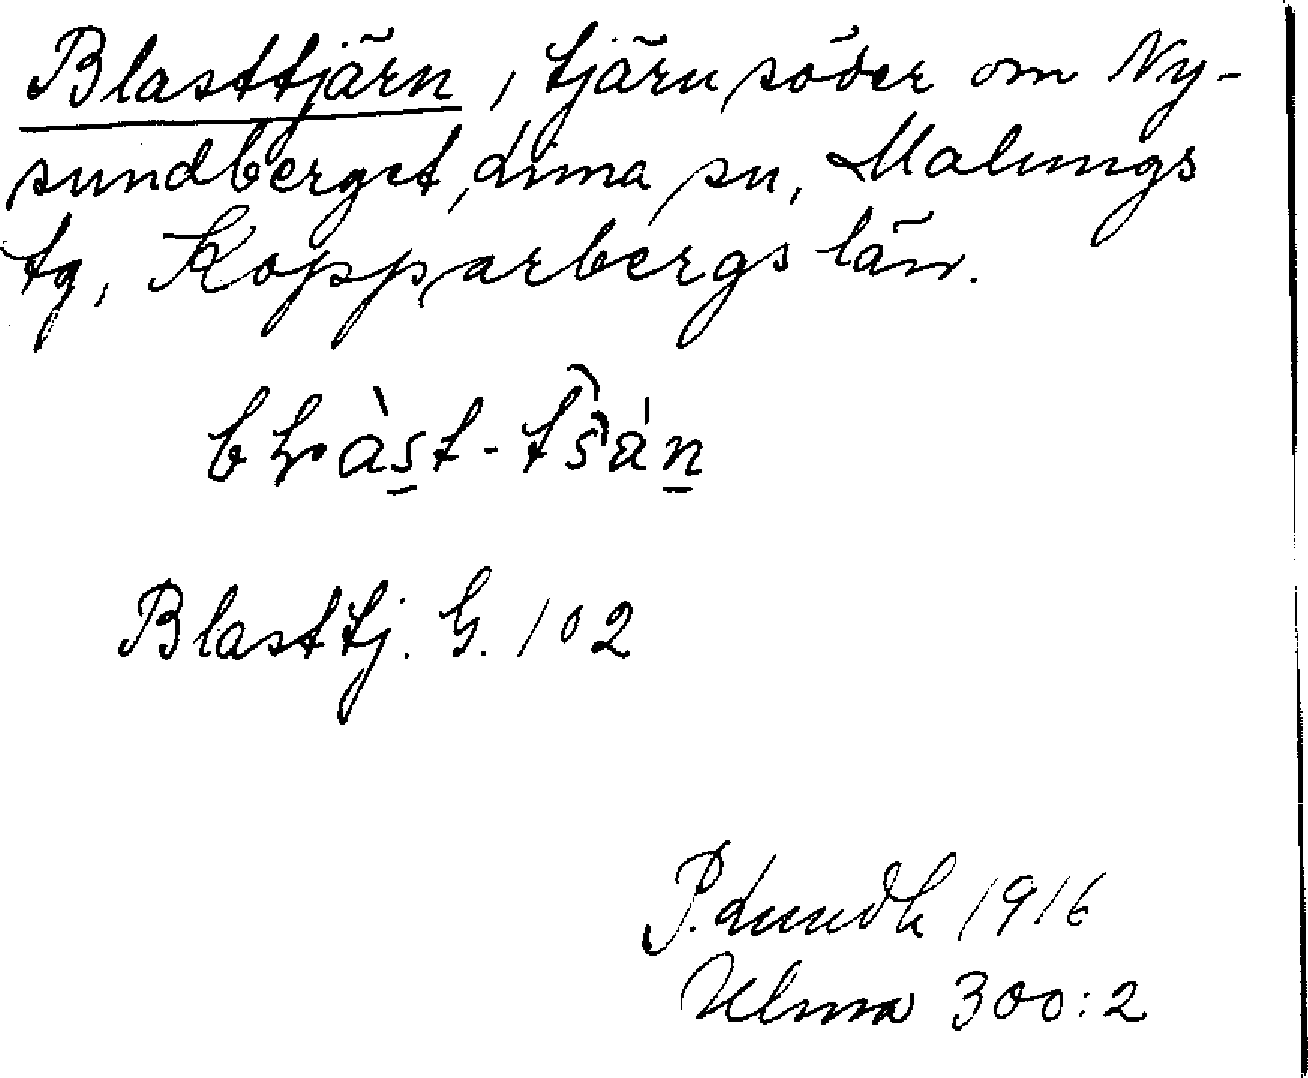 Blasttjärn, tjärn söder om Ny-
sundberget, Lima sn, Malungs
tg, Kopparbergs län.
Blasttj. G. 102
P. Lundk 1916
Ulma 300:2